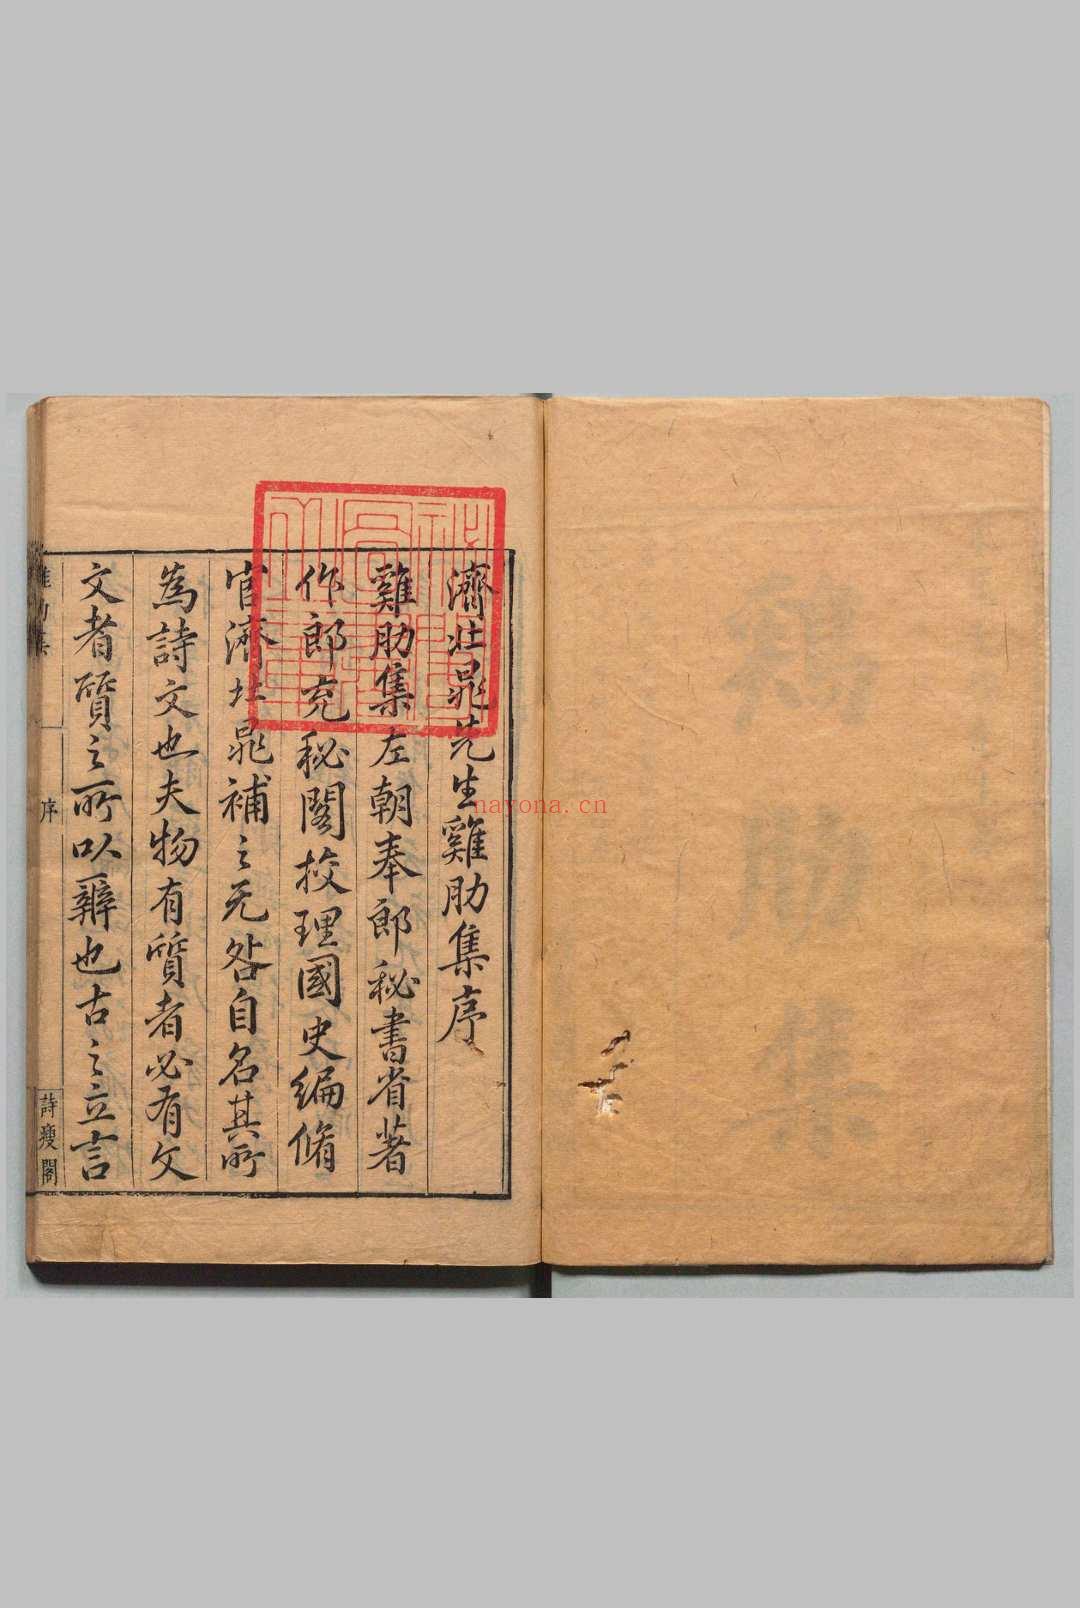 濟北晁先生雞肋集序
雞肋集左朝奉郎秘書省著
作郎充秘閣校理國史編脩
官濟北晁補之无咎自名其所
為詩文也夫物有質者必有文
文者質之所以辨也古之立言
雞肋集
序
詩瘦閣
nayona.cn